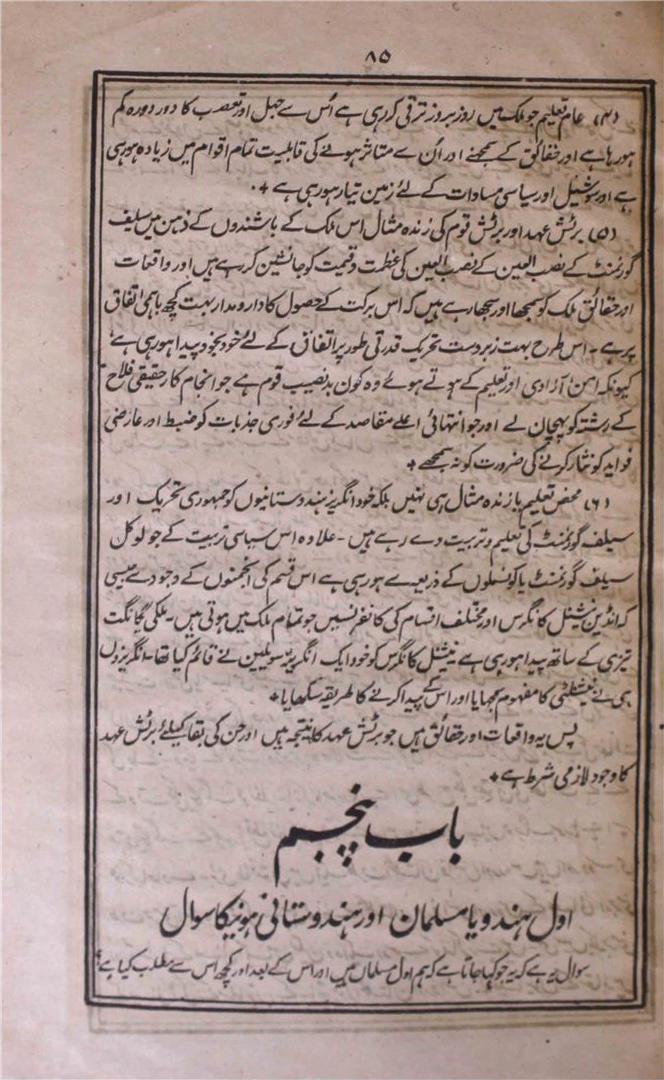 ۸۵
(۴) عام تعلیم جو ملک میں روز بروز ترقی کر رہی ہے اُس سے جہل اور تعصب کا دور دورہ کم
ہو رہا ہے اور حقائق کے سمجھنے اور اُن سے متاثر ہونے کی قابلیت تمام اقوام میں زیادہ ہو رہی
ہے اور سوشیل اور سیاسی مساوات کے لئے زمین تیار ہو رہی ہے +
(۵) برٹش عہد اور برٹش قوم کی زندہ مثال اس ملک کے باشندوں کے ذہن میں سیلف
گورنمنٹ کے نصب العین کے نصب العین کی عظمت و قیمت کو جانشین کر رہے ہیں اور واقعات
اور حقائق ملک کو سمجھا اور سجھا رہے ہیں کہ اس برکت کے حصول کا دارومدار بہت کچھ باہمی اتفاق
پر ہے ۔ اس طرح بہت زبردست تحریک قدرتی طور پر اتفاق کے لئے خود بخود پیدا ہو رہی ہے
کیونکہ امن آزادی اور تعلیم کے ہوتے ہوئے وہ کون بدنصیب قوم ہے جو انجام کار حقیقی فلاح
کے رشتہ کو پہچان لے اور جو انتہائی اعلےٰ مقاصد کے لئے فوری جذبات کو ضبط اور عارضی
فواید کو نثار کرنے کی ضرورت کو نہ سمجھے +
(۶) محض تعلیم یا زندہ مثال ہی نہیں بلکہ خود انگریز ہندوستانیوں کو جمہوری تحریک اور
سیلف گورنمنٹ کی تعلیم و تربیت دے رہے ہیں ۔ علاوہ اس سیاسی تربیت کے جو لوکل
سیلف گورنمنٹ یا کونسلوں کے ذریعے ہو رہی ہے اس قسم کی انجمنوں کے وجود سے جیسی
کہ انڈین نیشنل کانگرس اور مختلف اقسام کی کانفرنسیں جو تمام ملک میں ہوتی ہیں ۔ ملکی یگانگت
تیزی کے ساتھ پیدا ہو رہی ہے نیشنل کانگرس کو خود ایک انگریز سویلین نے قائم کیا تھا ۔ انگریزوں
ہی نے نیشنلٹی کا مفہوم سمجھایا اور اس کے پیدا کرنے کا طریقہ سکھایا +
پس یہ واقعات اور حقائق ہیں جو برٹش عہد کا نتیجہ ہیں اور جن کی بقا کیلئے برٹش عہد
کا وجود لازمی شرط ہے +
باب پنجم
اول ہندو یا مسلمان اور ہندوستانی ہونیکا سوال
سوال یہ ہے کہ یہ جو کہا جاتا ہے کہ ہم اول مسلمان ہیں اور اس کے بعد اور کچھ اس سے مطلب کیا ہے؟